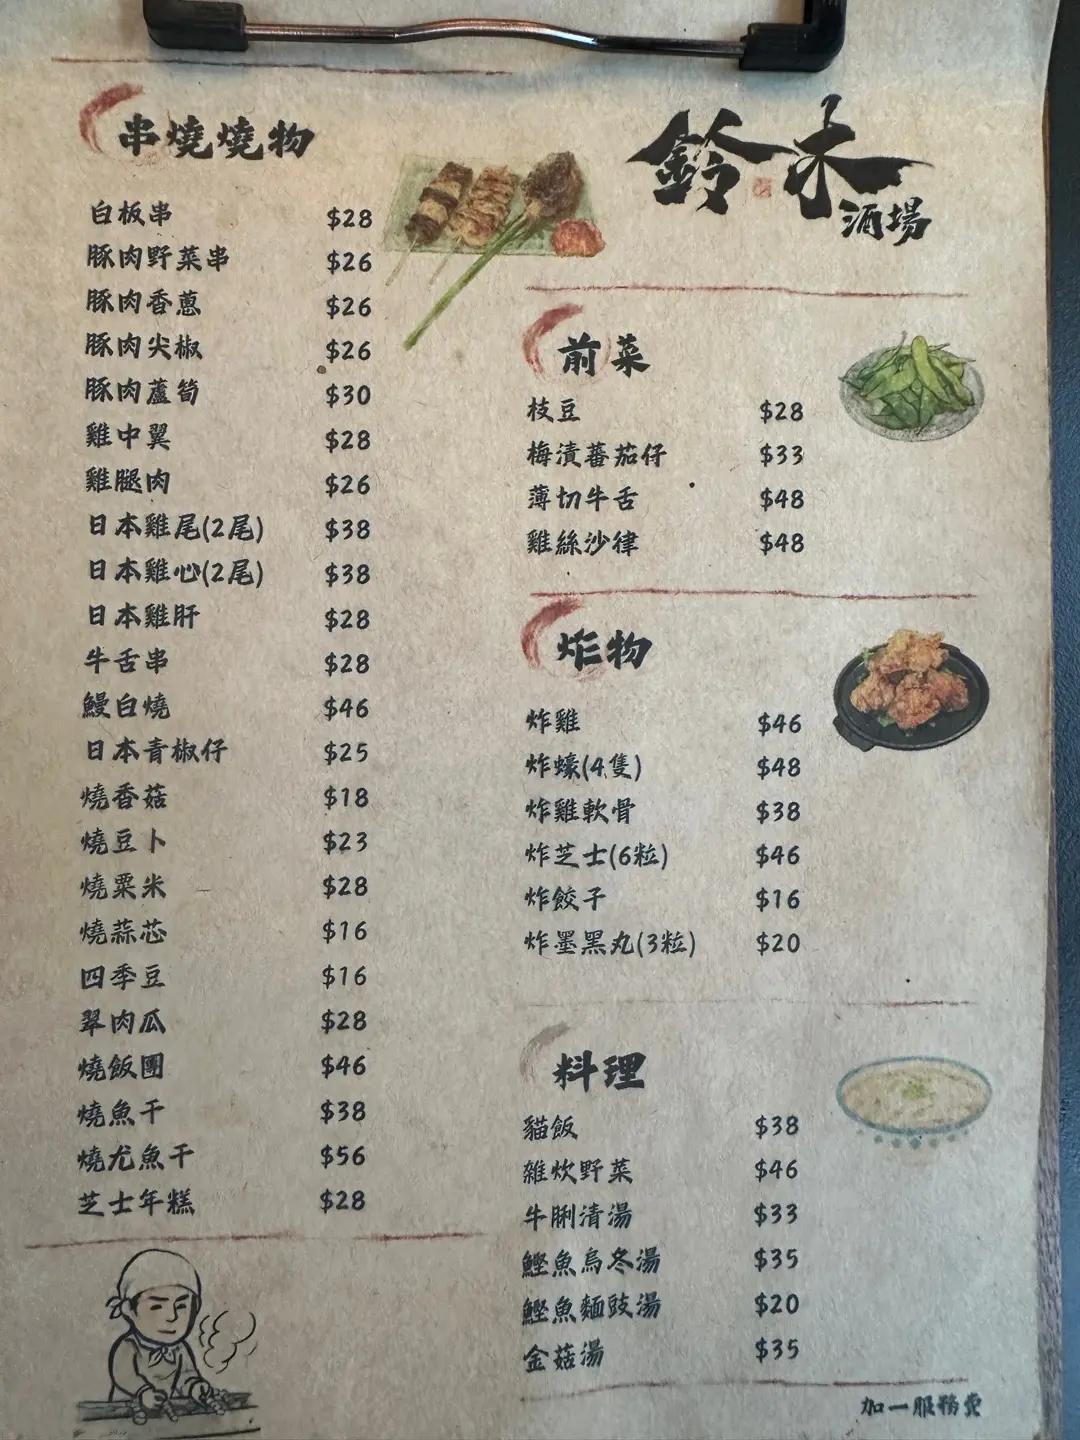 串燒燒物
白板串 $28
豚肉野菜串 $26
豚肉香蔥 $26
豚肉尖椒 $26
豚肉蘆筍 $30
雞中翼 $28
雞腿肉 $26
日本雞尾(2尾) $38
日本雞心(2尾) $38
日本雞肝 $28
牛舌串 $28
鰻白燒 $46
日本青椒仔 $25
燒香菇 $18
燒豆卜 $23
燒粟米 $28
燒蒜芯 $16
四季豆 $16
翠肉瓜 $28
燒飯團 $46
燒魚干 $38
燒尤魚干 $56
芝士年糕 $28
鈴木
酒場
前菜
枝豆 $28
梅漬蕃茄仔 $33
薄切牛舌 $48
雞絲沙律 $48
炸物
炸雞 $46
炸蠔(4隻) $48
炸雞軟骨 $38
炸芝士(6粒) $46
炸餃子 $16
炸墨黑丸(3粒) $20
料理
貓飯 $38
雜炊野菜 $46
牛脷清湯 $33
鰹魚烏冬湯 $35
鰹魚麵豉湯 $20
金菇湯 $35
加一服務費